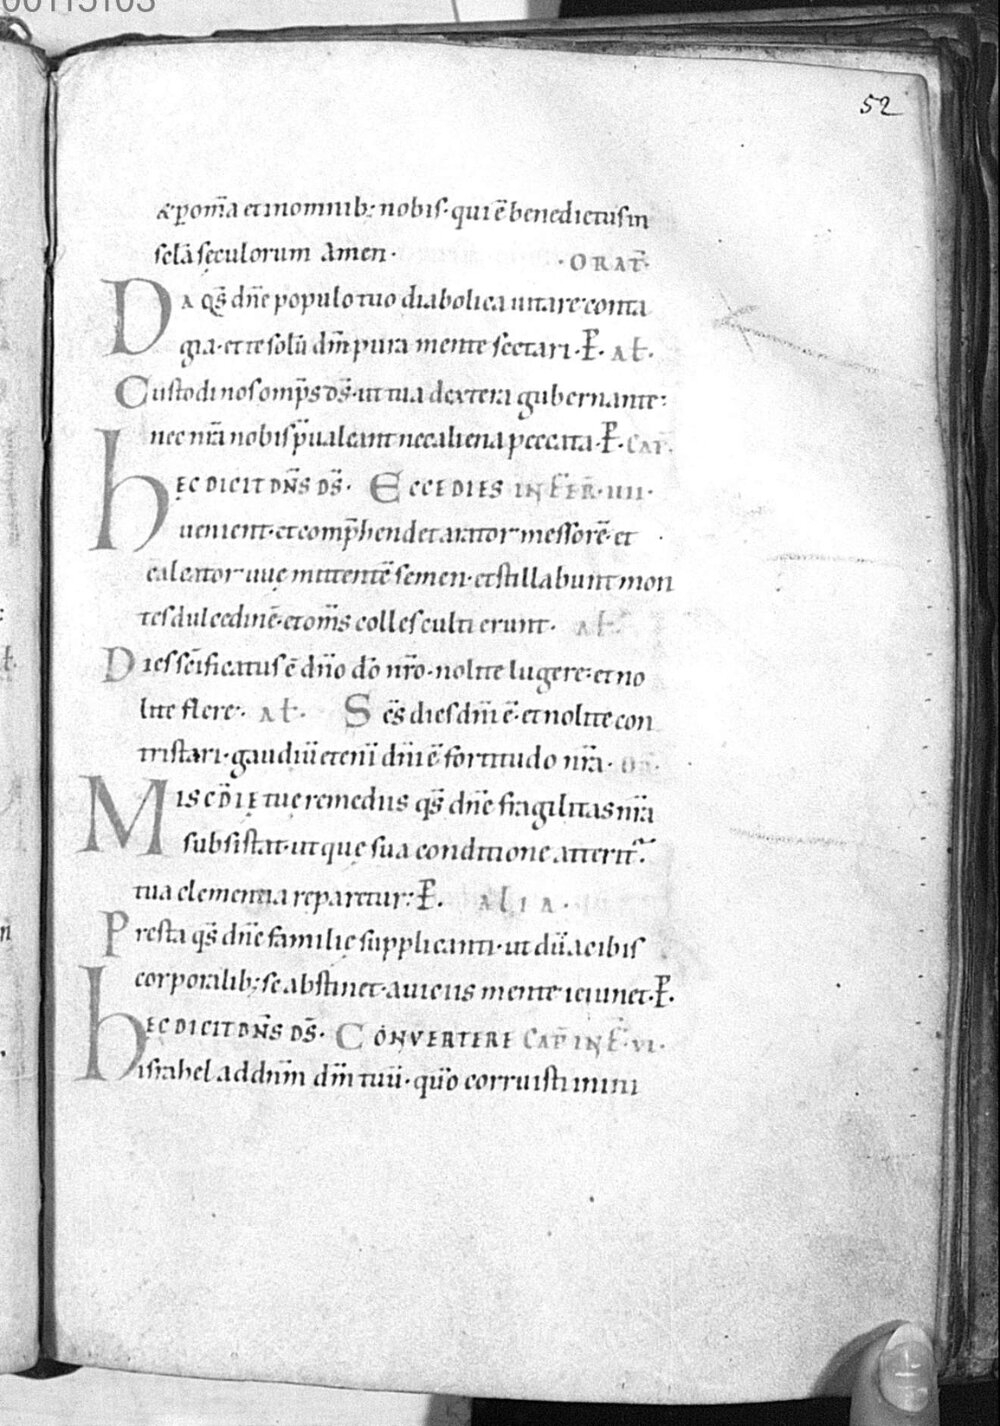 00115103
52
&ꝑom̄a et inomnib; nobis· qui ē benedictus in
sclā sęculorum Amen·
·ORAT̄·
DA qs̄ dn̄e populo tuo diabolica uitare conta
gia· et te solū dm̄ pura mente sectari· P̄· AŁ·
Custodi nos omp̄s ds̄· ut tua dextera gubernante:
nec nr̄a nobis p̄ualeant nec aliena peccata· P̄· CAP̄·
hĘC DICIT DN̄S DS̄· ECCE DIES IN FER̄· IIII·
uenient· et comp̄hendet arator messorē· et
calcator uuę mittentē semen· et stillabunt mon
tes dulcedinē· et om̄s colles culti erunt· AŁ·
Dies sc̄ificatus ē dn̄o dō nr̄o· nolite lugere· et no
lite flere· AŁ· Sc̄s dies dn̄i ē· et nolite con
tristari· gaudiū etenī dn̄i ē fortitudo nr̄a· OR̄·
MISCD̄IĘ tuę remediis qs̄ dn̄e fragilitas nr̄a
subsistat· ut que sua conditione atterit̄·
tua clementia reparetur: P̄· ALIA·
Presta qs̄ dn̄e familię supplicanti· ut dū a cibis
corporalib; se abstinet· a uiciis mente ieiunet· P̄·
hĘC DICIT DN̄S DS̄· CONVERTERE CAP̄ IN F̄· VI·
israhel ad dn̄m dm̄ tuū· qm̄o corruisti in ini